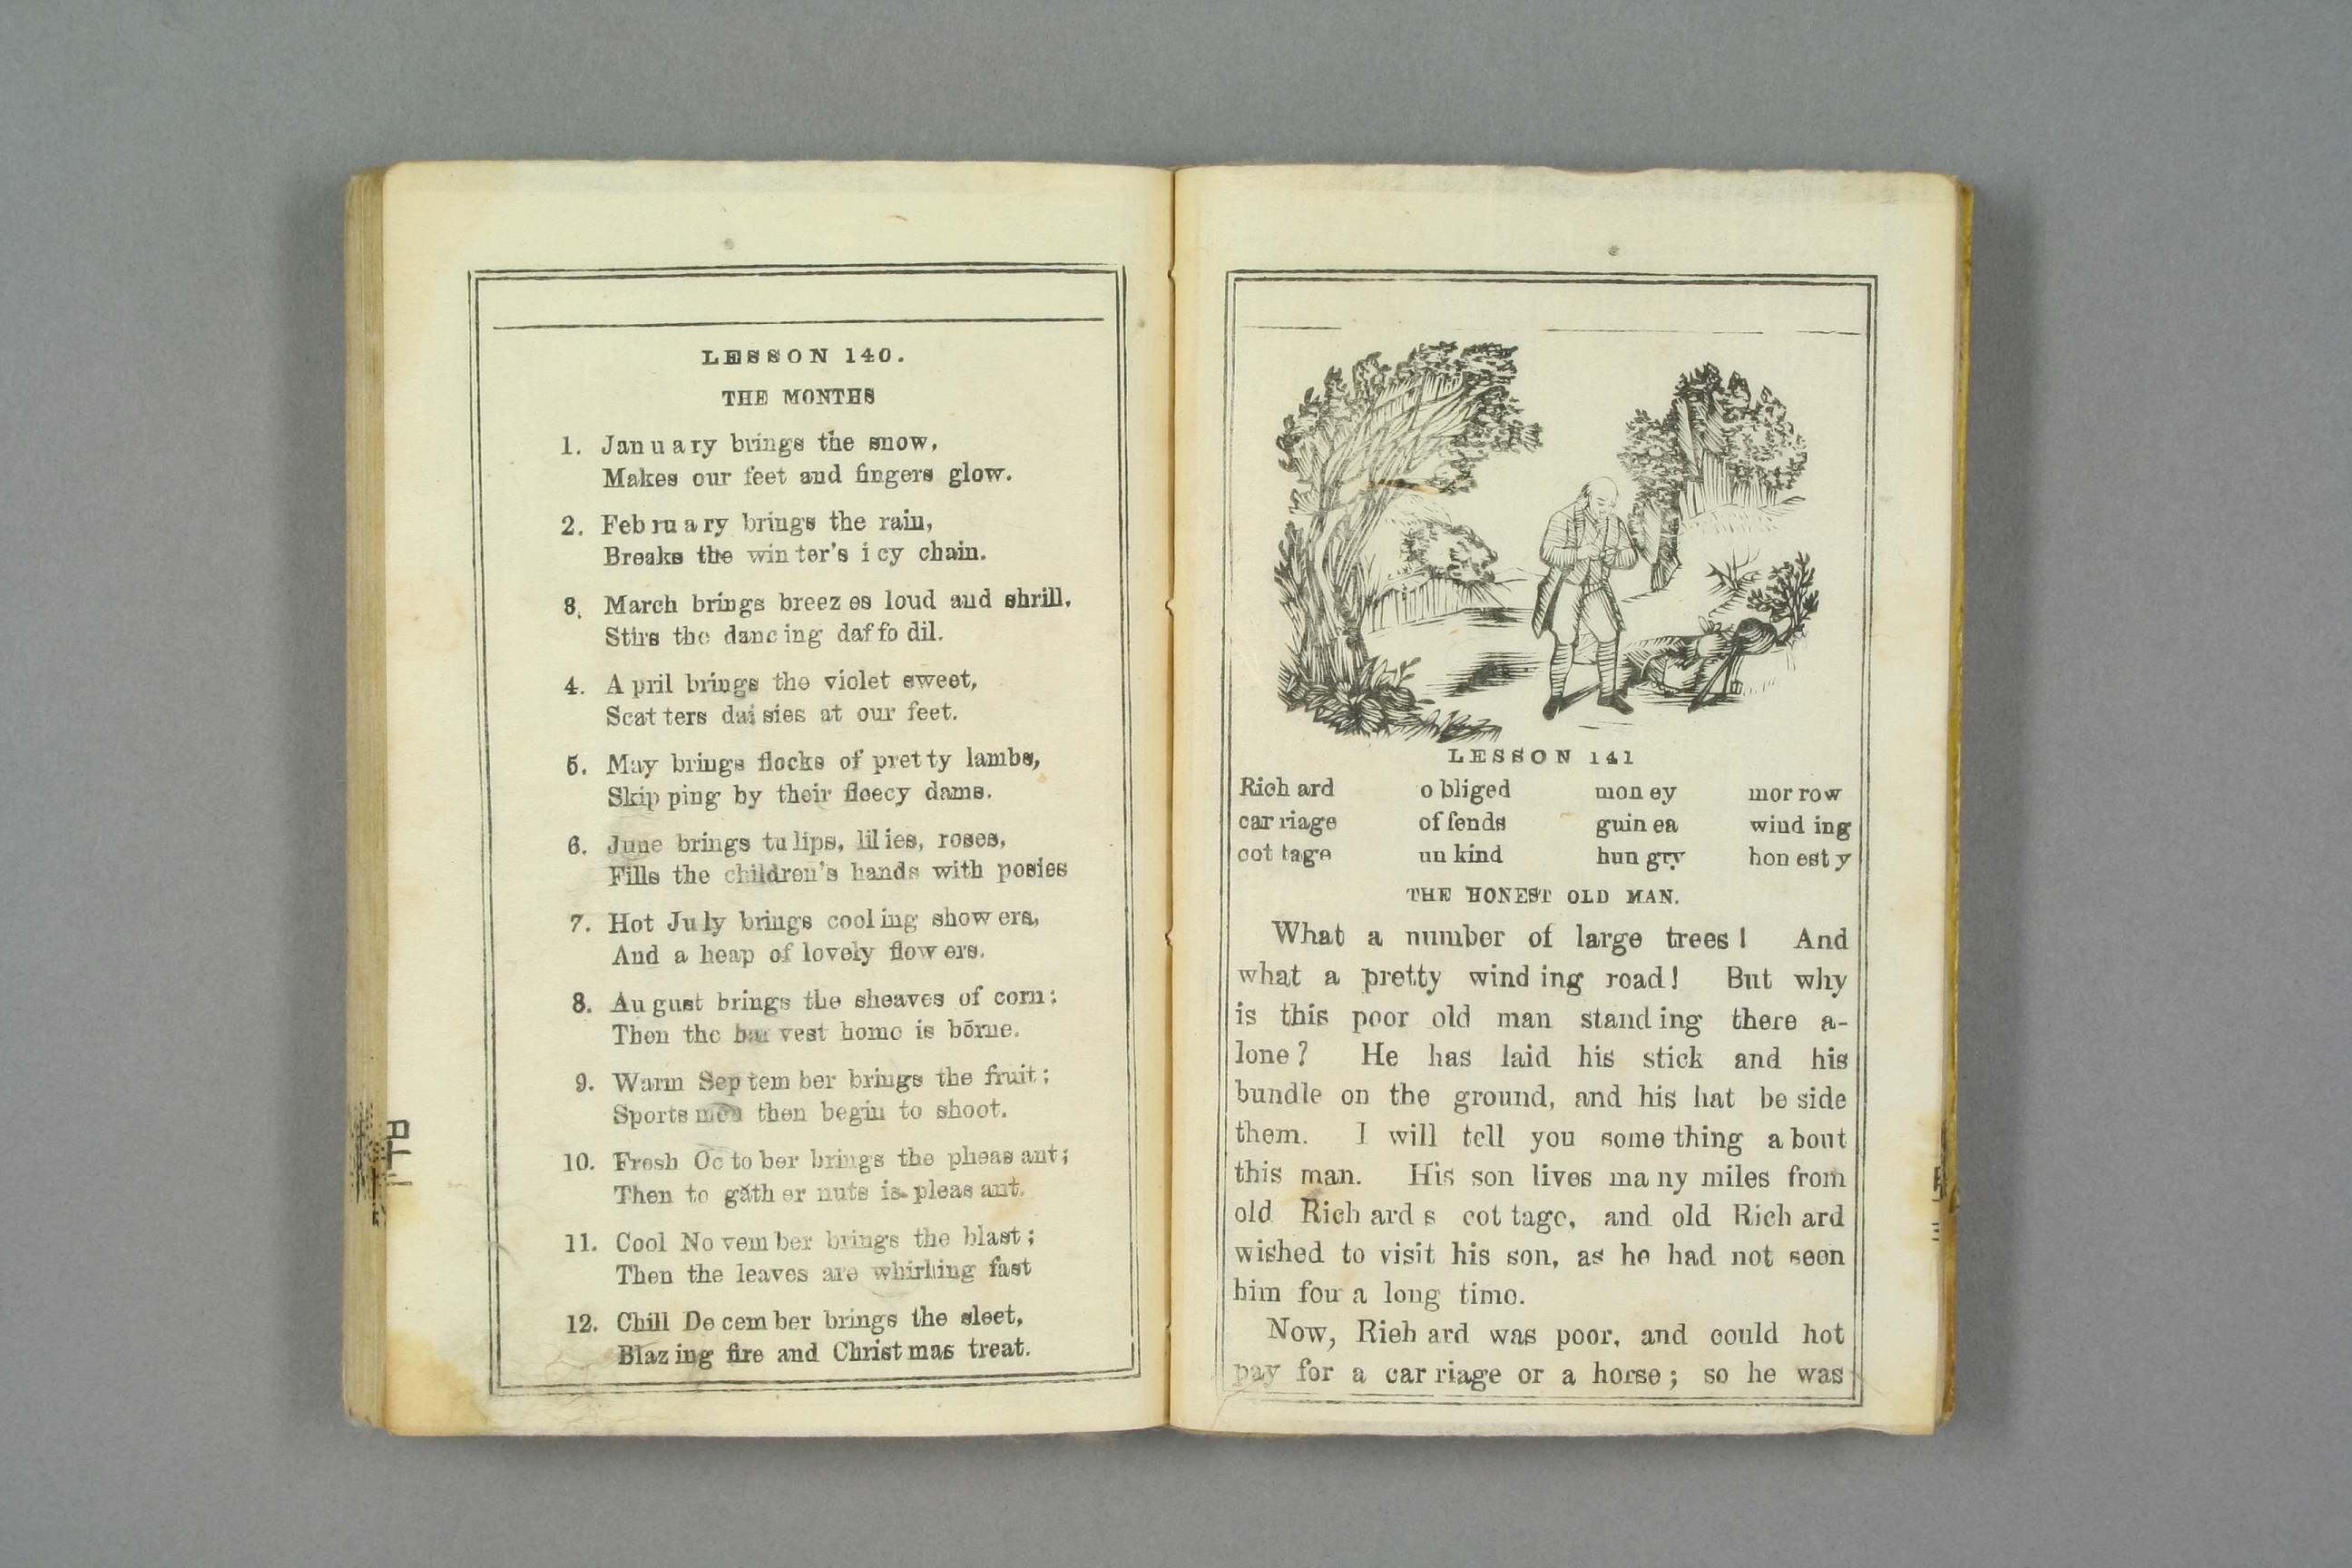 LESSON 140.
THE MONTHS
1. Jan u a ry brings the snow,
Makes our feet and fingers glow.
2. Feb ru a ry brings the rain,
Breaks the win ter's i cy chain.
3. March brings breez es loud and shrill,
Stirs the danc ing daf fo dil.
4. A pril brings the violet sweet,
Scat ters dai sies at our feet.
5. May brings flocks of pret ty lambs,
Skip ping by their fleecy dams.
6. June brings tu lips, lil ies, roses,
Fills the children's hands with posies
7. Hot Ju ly brings cool ing show ers,
And a heap of lovely flow ers.
8. Au gust brings the sheaves of corn;
Then the har vest home is bōrne.
9. Warm Sep tem ber brings the fruit;
Sports men then begin to shoot.
10. Fresh Oc to ber brings the pheas ant;
Then to găth er nuts is pleas ant.
11. Cool No vem ber brings the blast;
Then the leaves are whirling fast
12. Chill De cem ber brings the sleet,
Blaz ing fire and Christ mas treat.
LESSON 141
Rich ard o bliged mon ey mor row
car riage of fends guin ea wind ing
cot tage un kind hun gry hon est y
THE HONEST OLD MAN.
What a number of large trees! And
what a pretty wind ing road! But why
is this poor old man stand ing there a-
lone? He has laid his stick and his
bundle on the ground, and his hat be side
them. I will tell you some thing a bout
this man. His son lives ma ny miles from
old Rich ard s cot tage, and old Rich ard
wished to visit his son, as he had not seen
him fou a long time.
Now, Rich ard was poor, and could hot
pay for a car riage or a horse; so he was